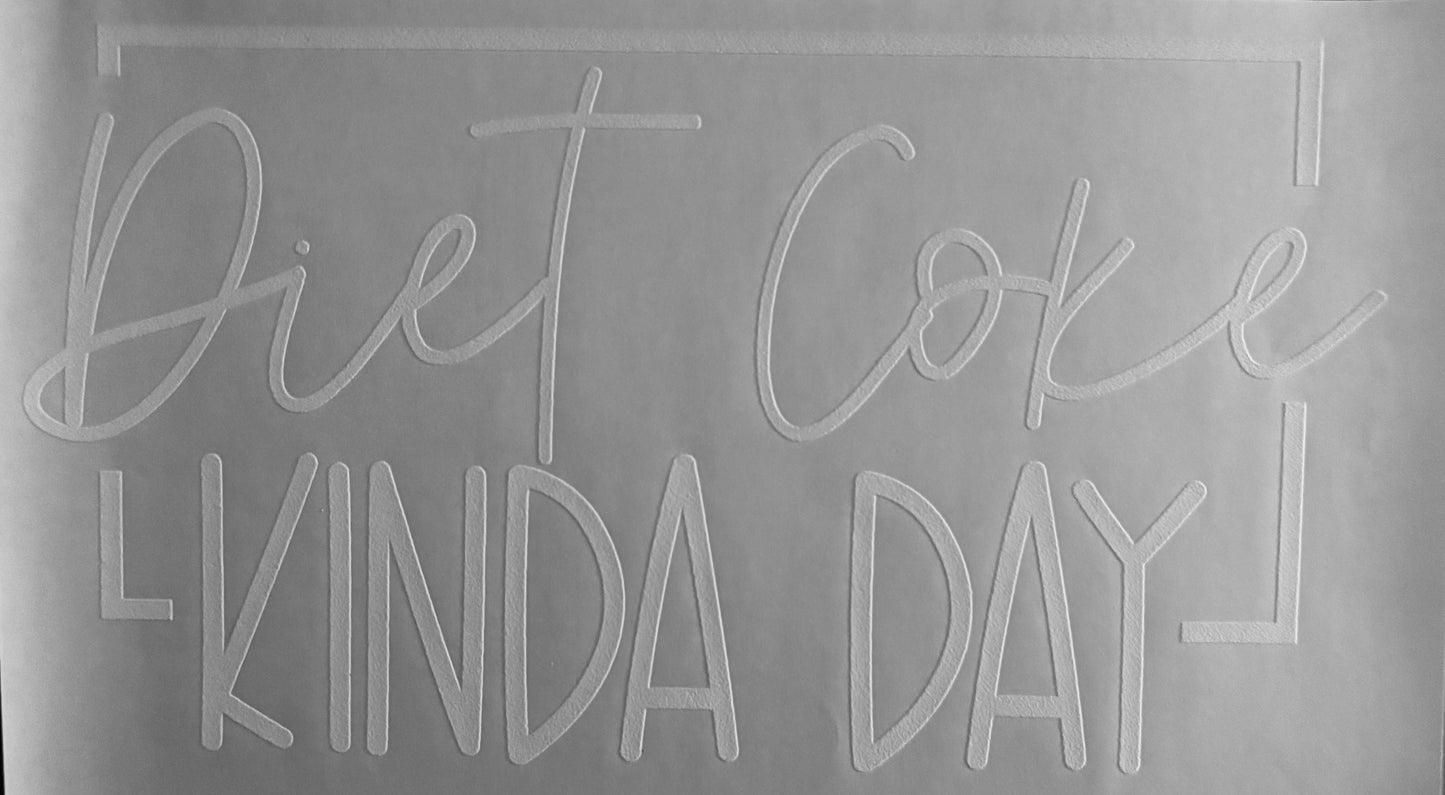 Diet Coke
KINDA DAY